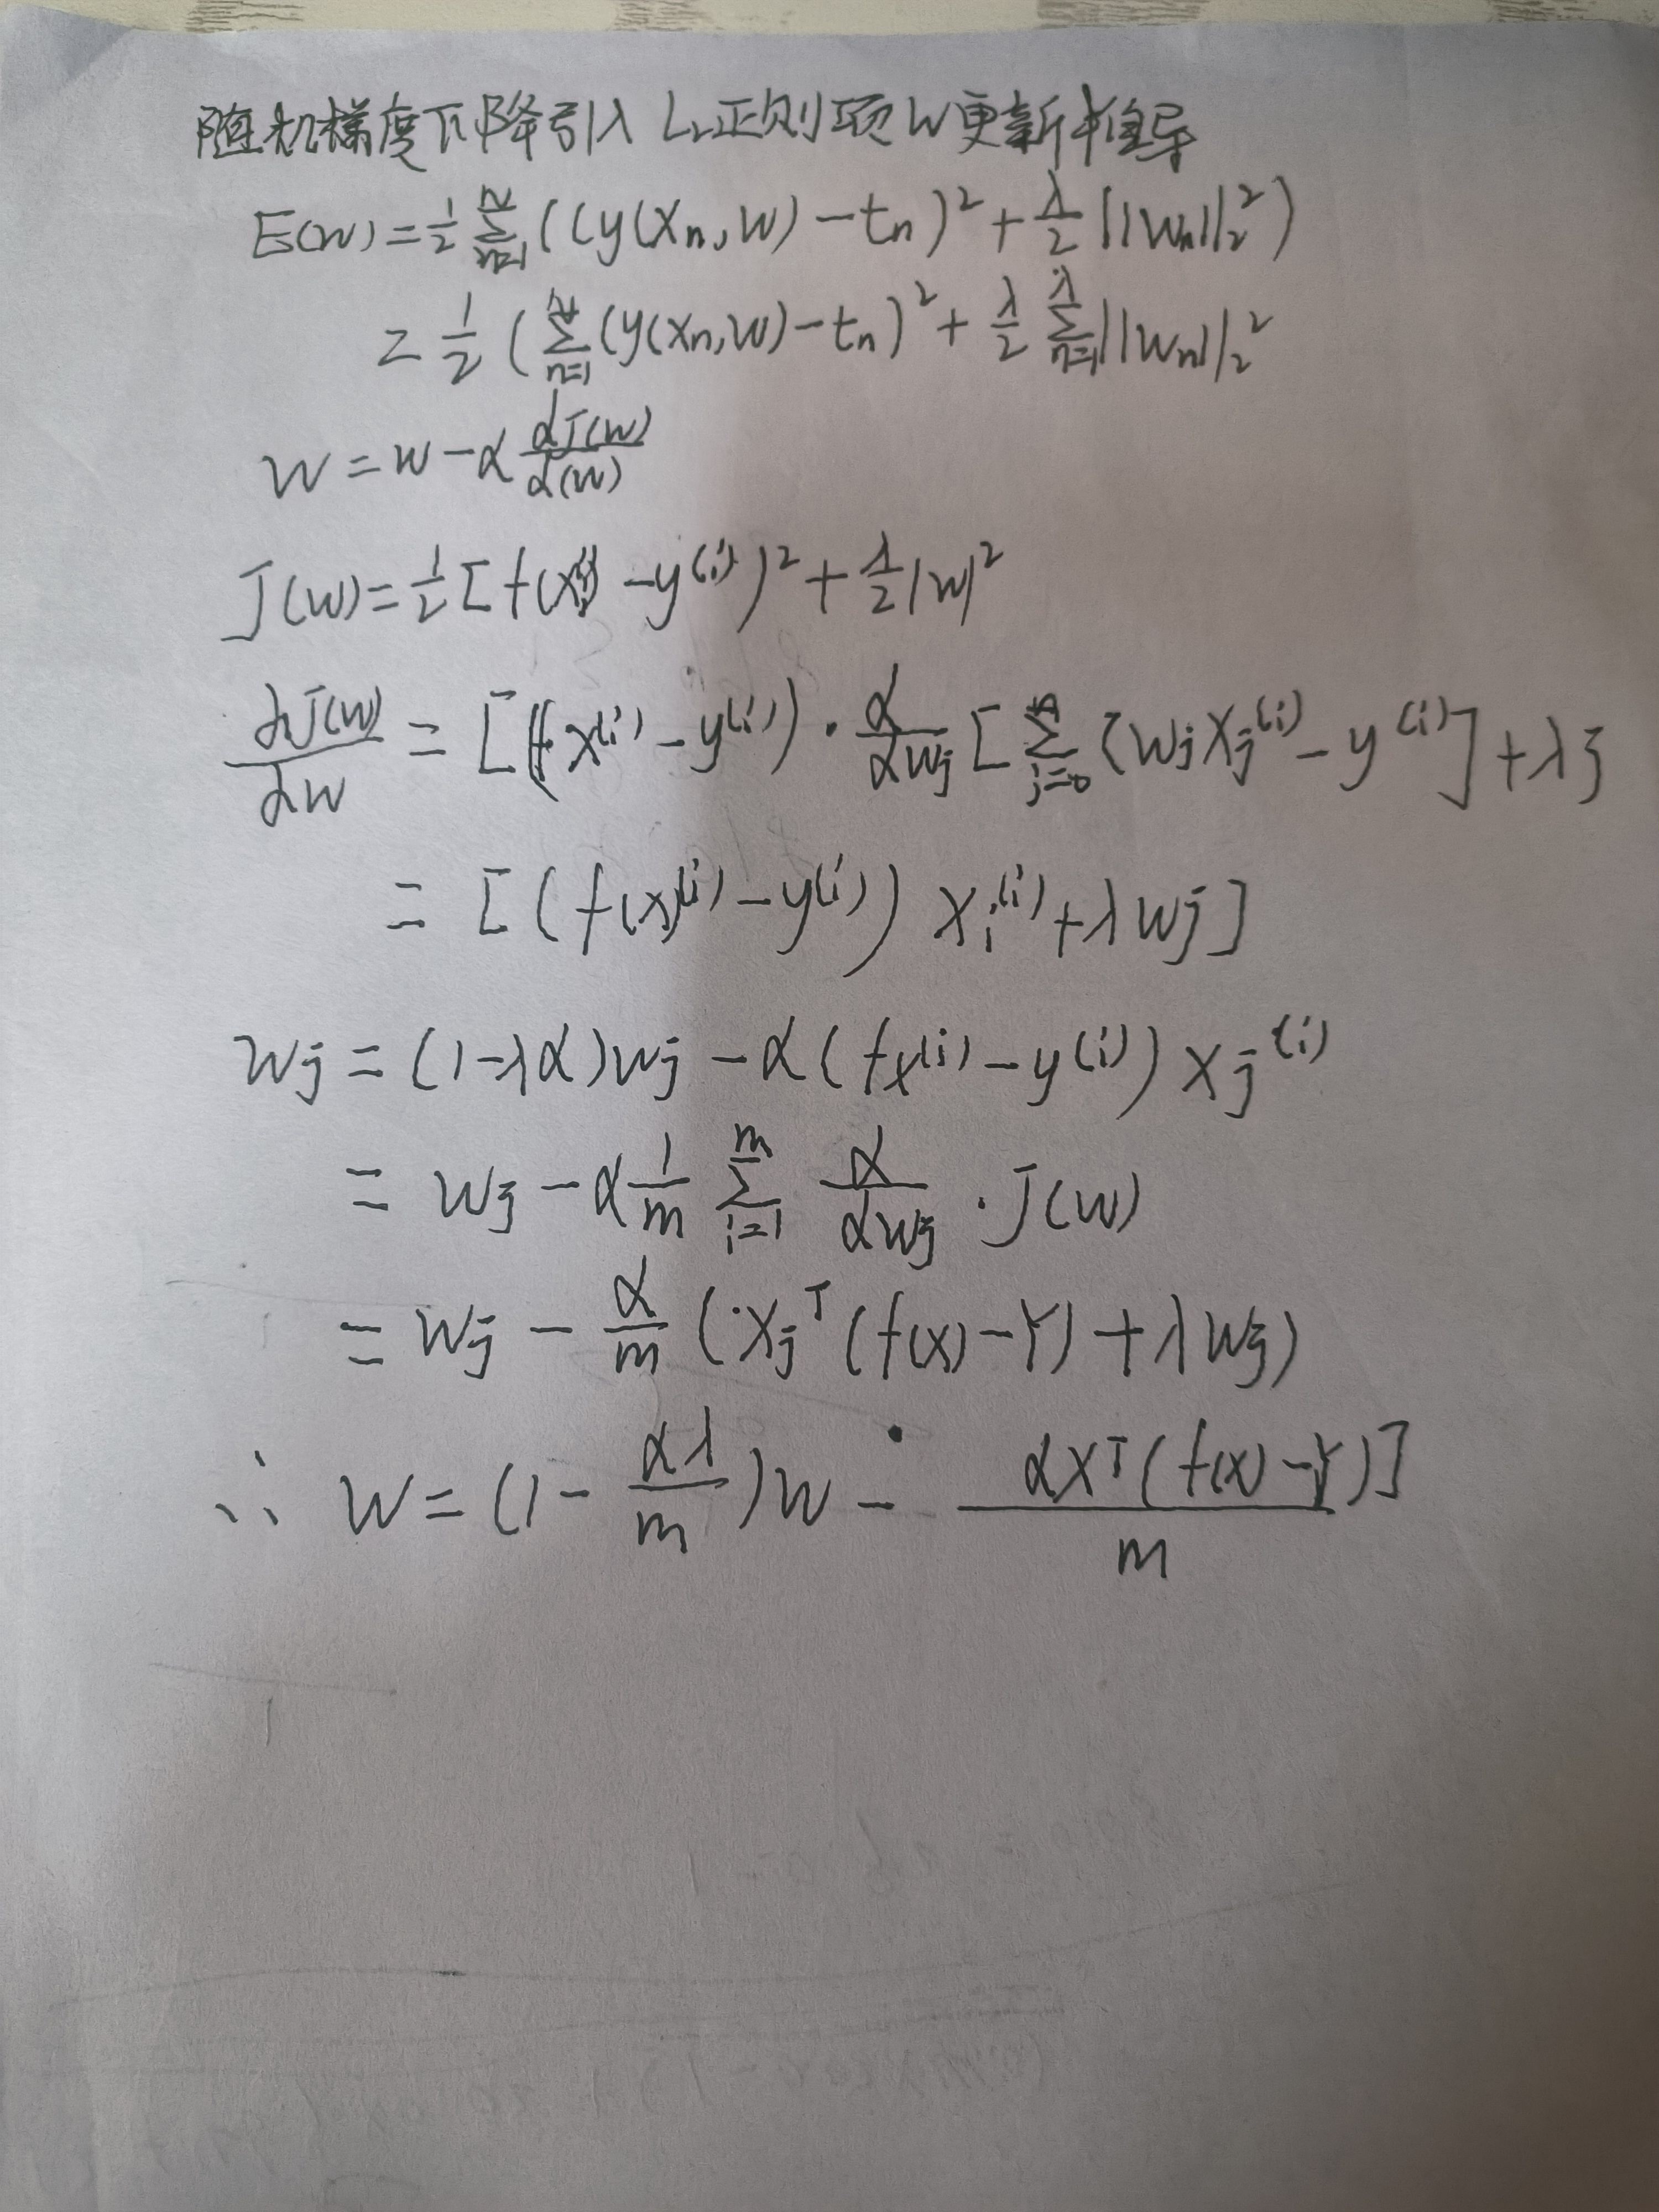 随机梯度下降引入L₂正则项W更新推导
E(w)=½ Σ_{n=1}^{N} ((y(xₙ,w)-tₙ)²+λ/2||wₙ||₂²)
=½(Σ_{n=1}^{N}(y(xₙ,w)-tₙ)²+λ/2 Σ_{n=1}^{λ}||wₙ||₂²
w=w-α dJ(w)/d(w)
J(w)=½[f(x⁽ⁱ⁾)-y⁽ⁱ⁾)²+λ/2|w|²
∂J(w)/∂w=[(fx⁽ⁱ⁾-y⁽ⁱ⁾)·α/αwⱼ[Σ_{j=0}^{n}(wⱼxⱼ⁽ⁱ⁾-y⁽ⁱ⁾]+λj
=[(f(x)⁽ⁱ⁾-y⁽ⁱ⁾)xᵢ⁽ⁱ⁾+λwⱼ]
wⱼ=(1-λα)wⱼ-α(fx⁽ⁱ⁾-y⁽ⁱ⁾)xⱼ⁽ⁱ⁾
=wⱼ-α 1/m Σ_{i=1}^{m} α/αwⱼ·J(w)
=wⱼ-α/m(·xⱼᵀ(f(x)-Y)+λwⱼ)
∴ w=(1-αλ/m)w-αXᵀ(f(x)-Y)]/m